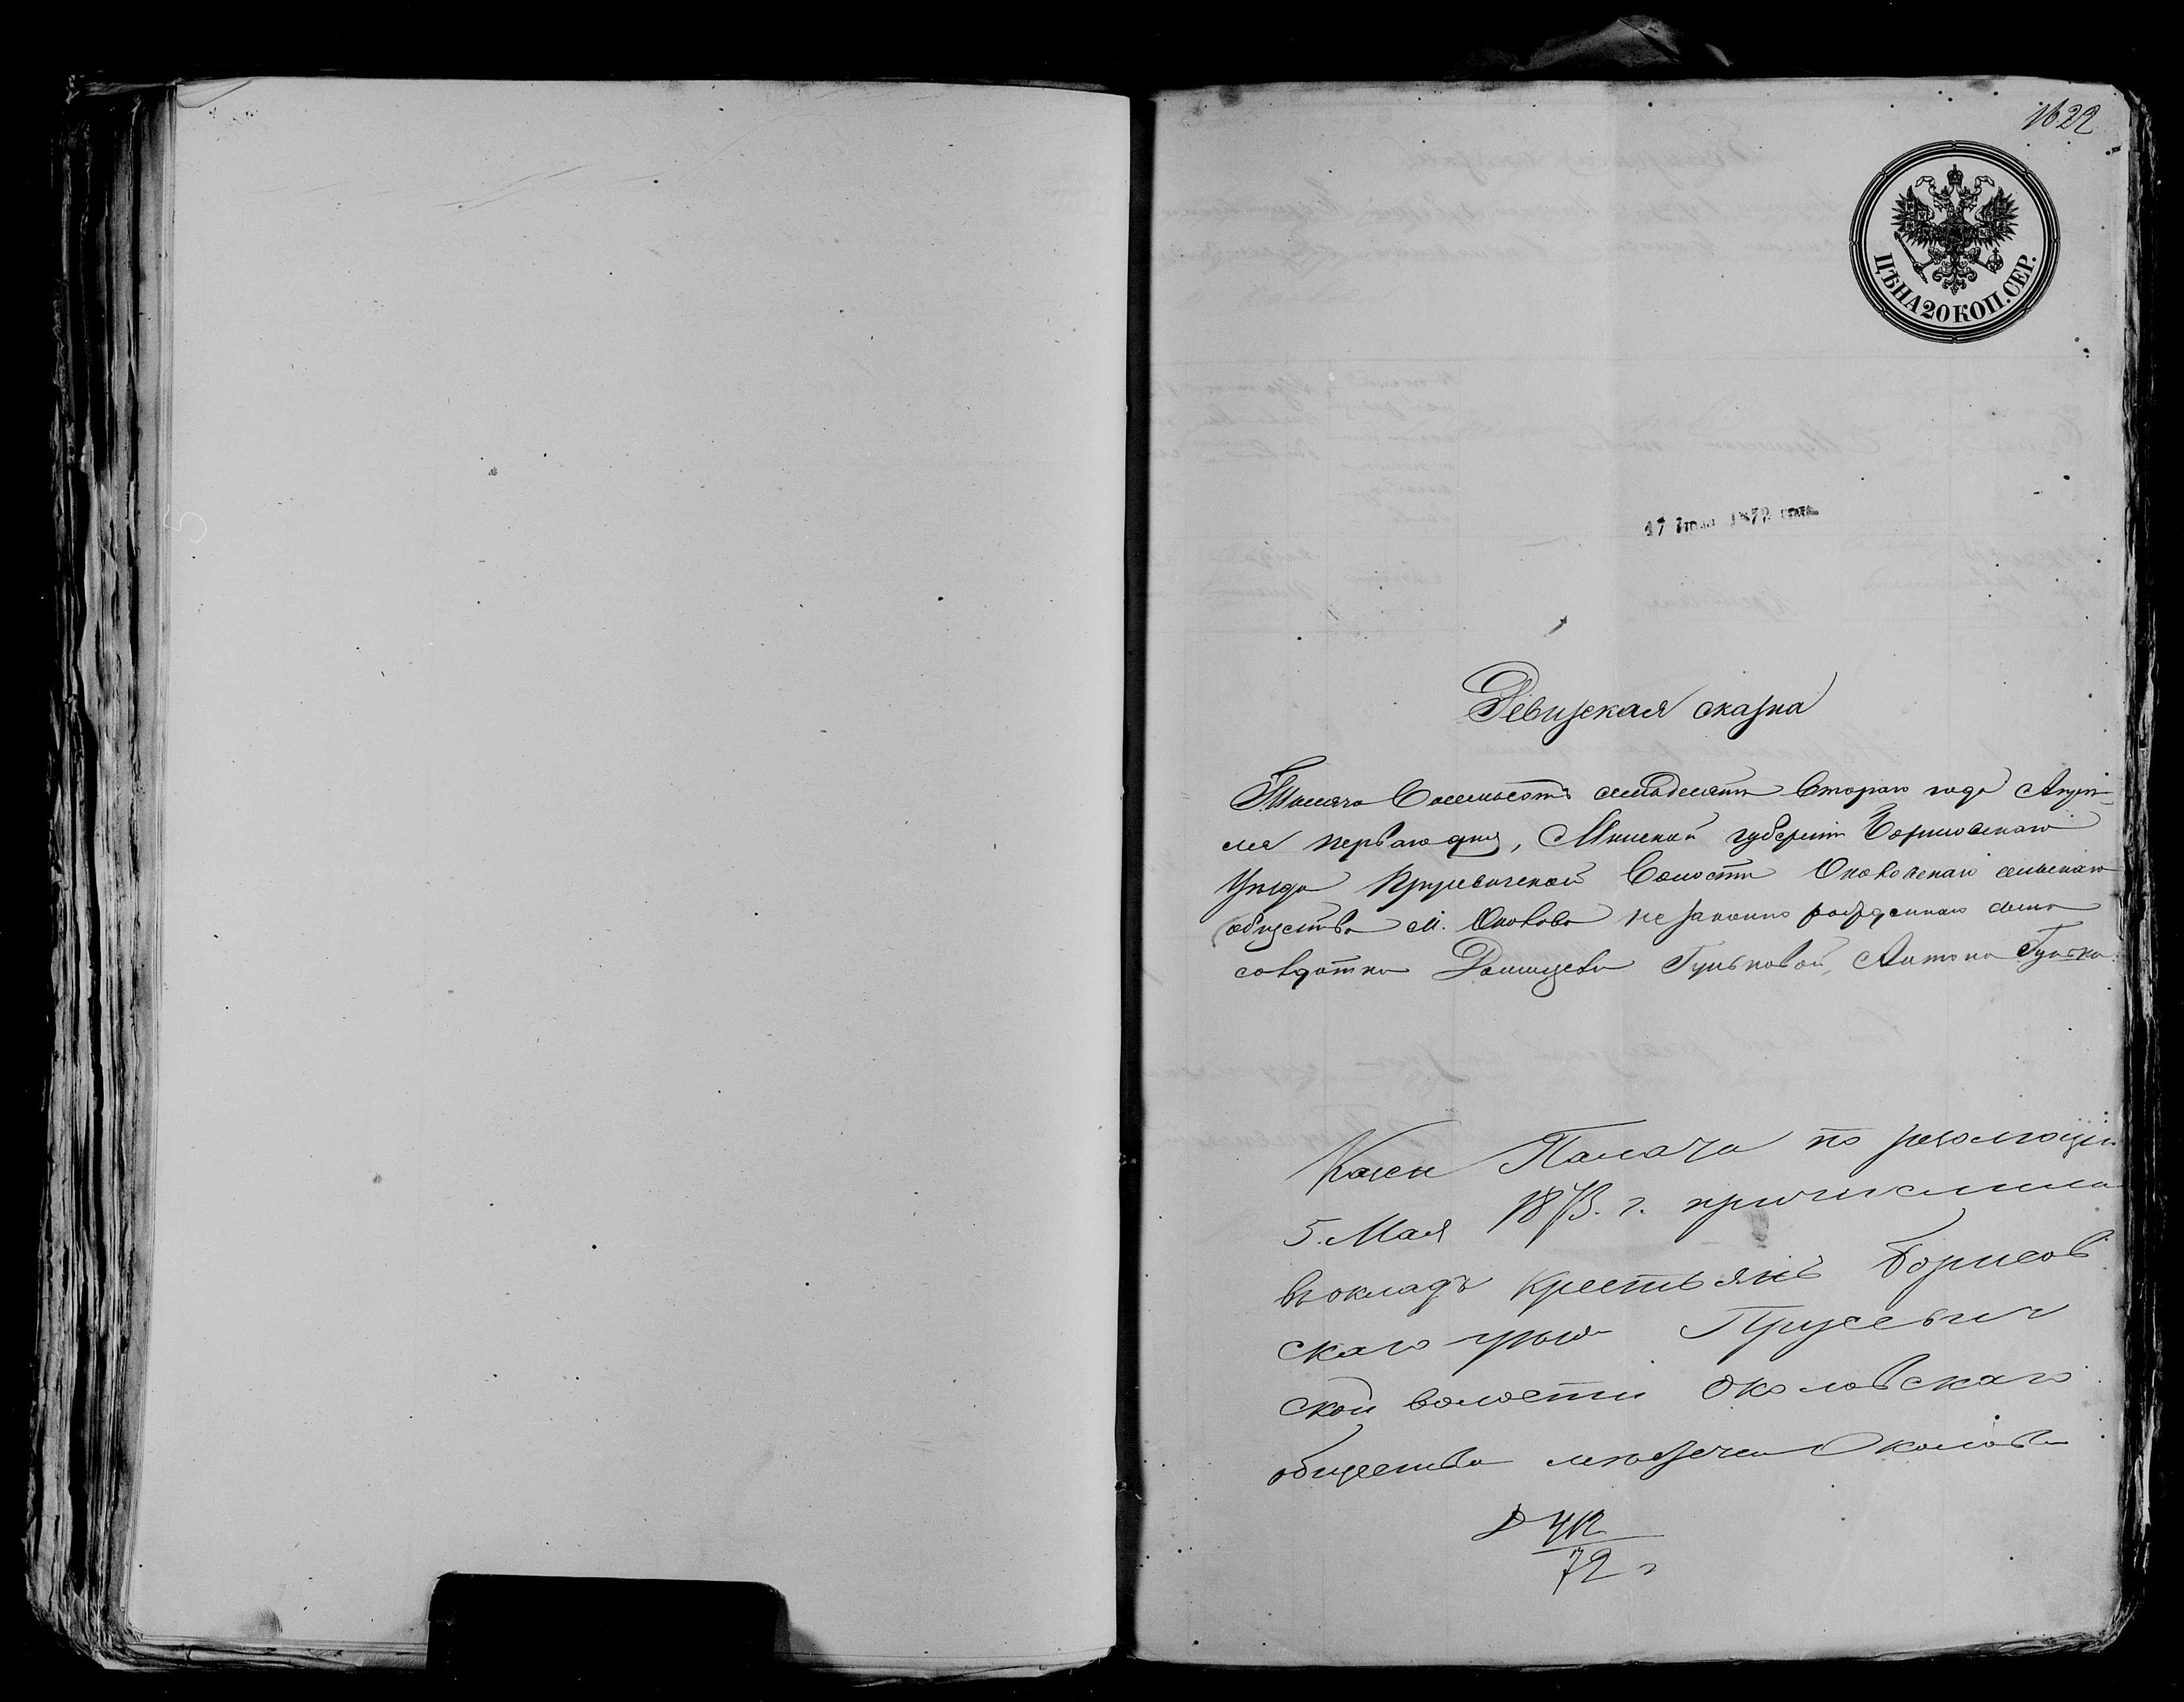 1622
ЦѢНА 20 КОП. СЕР.
17 1872 года
Ревизская сказка
Тысяча восемьсотъ семьдесятъ втораго года Апрѣ-
ля перваго дня, Минской губерніи Борисовскаго
уѣзда Прусевичской волости Околовскаго сельскаго
общества м. Околова незаконно рожденнаго сына
солдатки Гуньковой, Антона Гунька.
Казен Палата по резолюціи
5. Мая 1873. г. причислила
въ окладъ крестьянъ Борисов
скаго уѣзда Прусевич
ской волости Околовскаго
общества местечка Околова
72 г